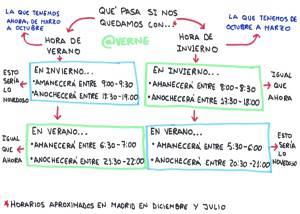 LA QUE TENEMOS
AHORA, DE MARZO
A OCTUBRE
QUÉ PASA SI NOS
QUEDAMOS CON...
@VERNE
LA QUE TENEMOS DE
OCTUBRE A MARZO
HORA DE
VERANO
HORA DE
INVIERNO
ESTO
SERÍA
LO
NOVEDOSO
EN INVIERNO...
•AMANECERÁ ENTRE 9:00-9:30
•ANOCHECERÁ ENTRE 18:30-19:00
EN INVIERNO...
•AMANECERÁ ENTRE 8:00-8:30
•ANOCHECERÁ ENTRE 17:30-18:00
IGUAL
QUE
AHORA
IGUAL
QUE
AHORA
EN VERANO...
•AMANECERÁ ENTRE 6:30-7:00
•ANOCHECERÁ ENTRE 21:30-22:00
EN VERANO...
•AMANECERÁ ENTRE 5:30-6:00
•ANOCHECERÁ ENTRE 20:30-21:00
ESTO
SERÍA
LO
NOVEDOSO
*HORARIOS APROXIMADOS EN MADRID EN DICIEMBRE Y JULIO